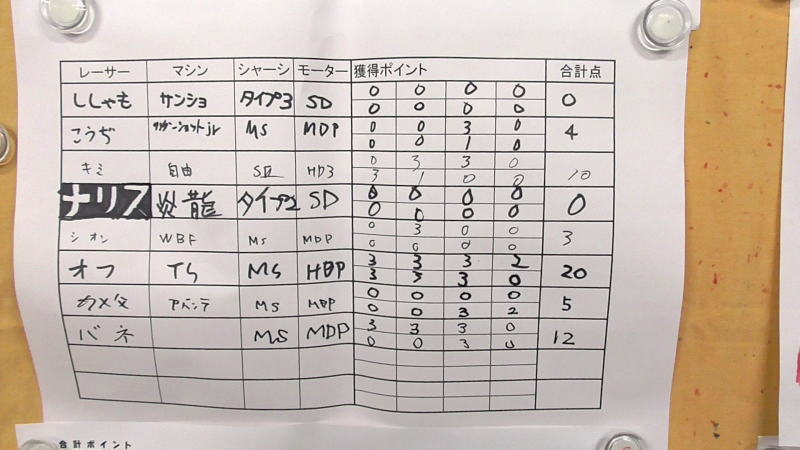 レーサー マシン シャーシ モーター 獲得ポイント 合計点
ししゃも サンショ タイプ3 SD 0 0 0 0 0
0 0 0 0
こうぢ MS MDP 0 0 3 0 4
0 0 1 0
キミ 自由 SII HD3 0 3 3 0 10
3 1 0 0
ナリス 炎龍 タイプ2 SD 0 0 0 0 0
0 0 0 0
シオン WBF MS MDP 0 3 0 0 3
0 0 0 0
オフ TS MS HDP 3 3 3 2 20
3 3 3 0
カメ父 アバンテ MS MDP 0 0 0 0 5
0 0 3 2
バネ MS MDP 3 3 3 0 12
0 0 3 0
合計ポイント